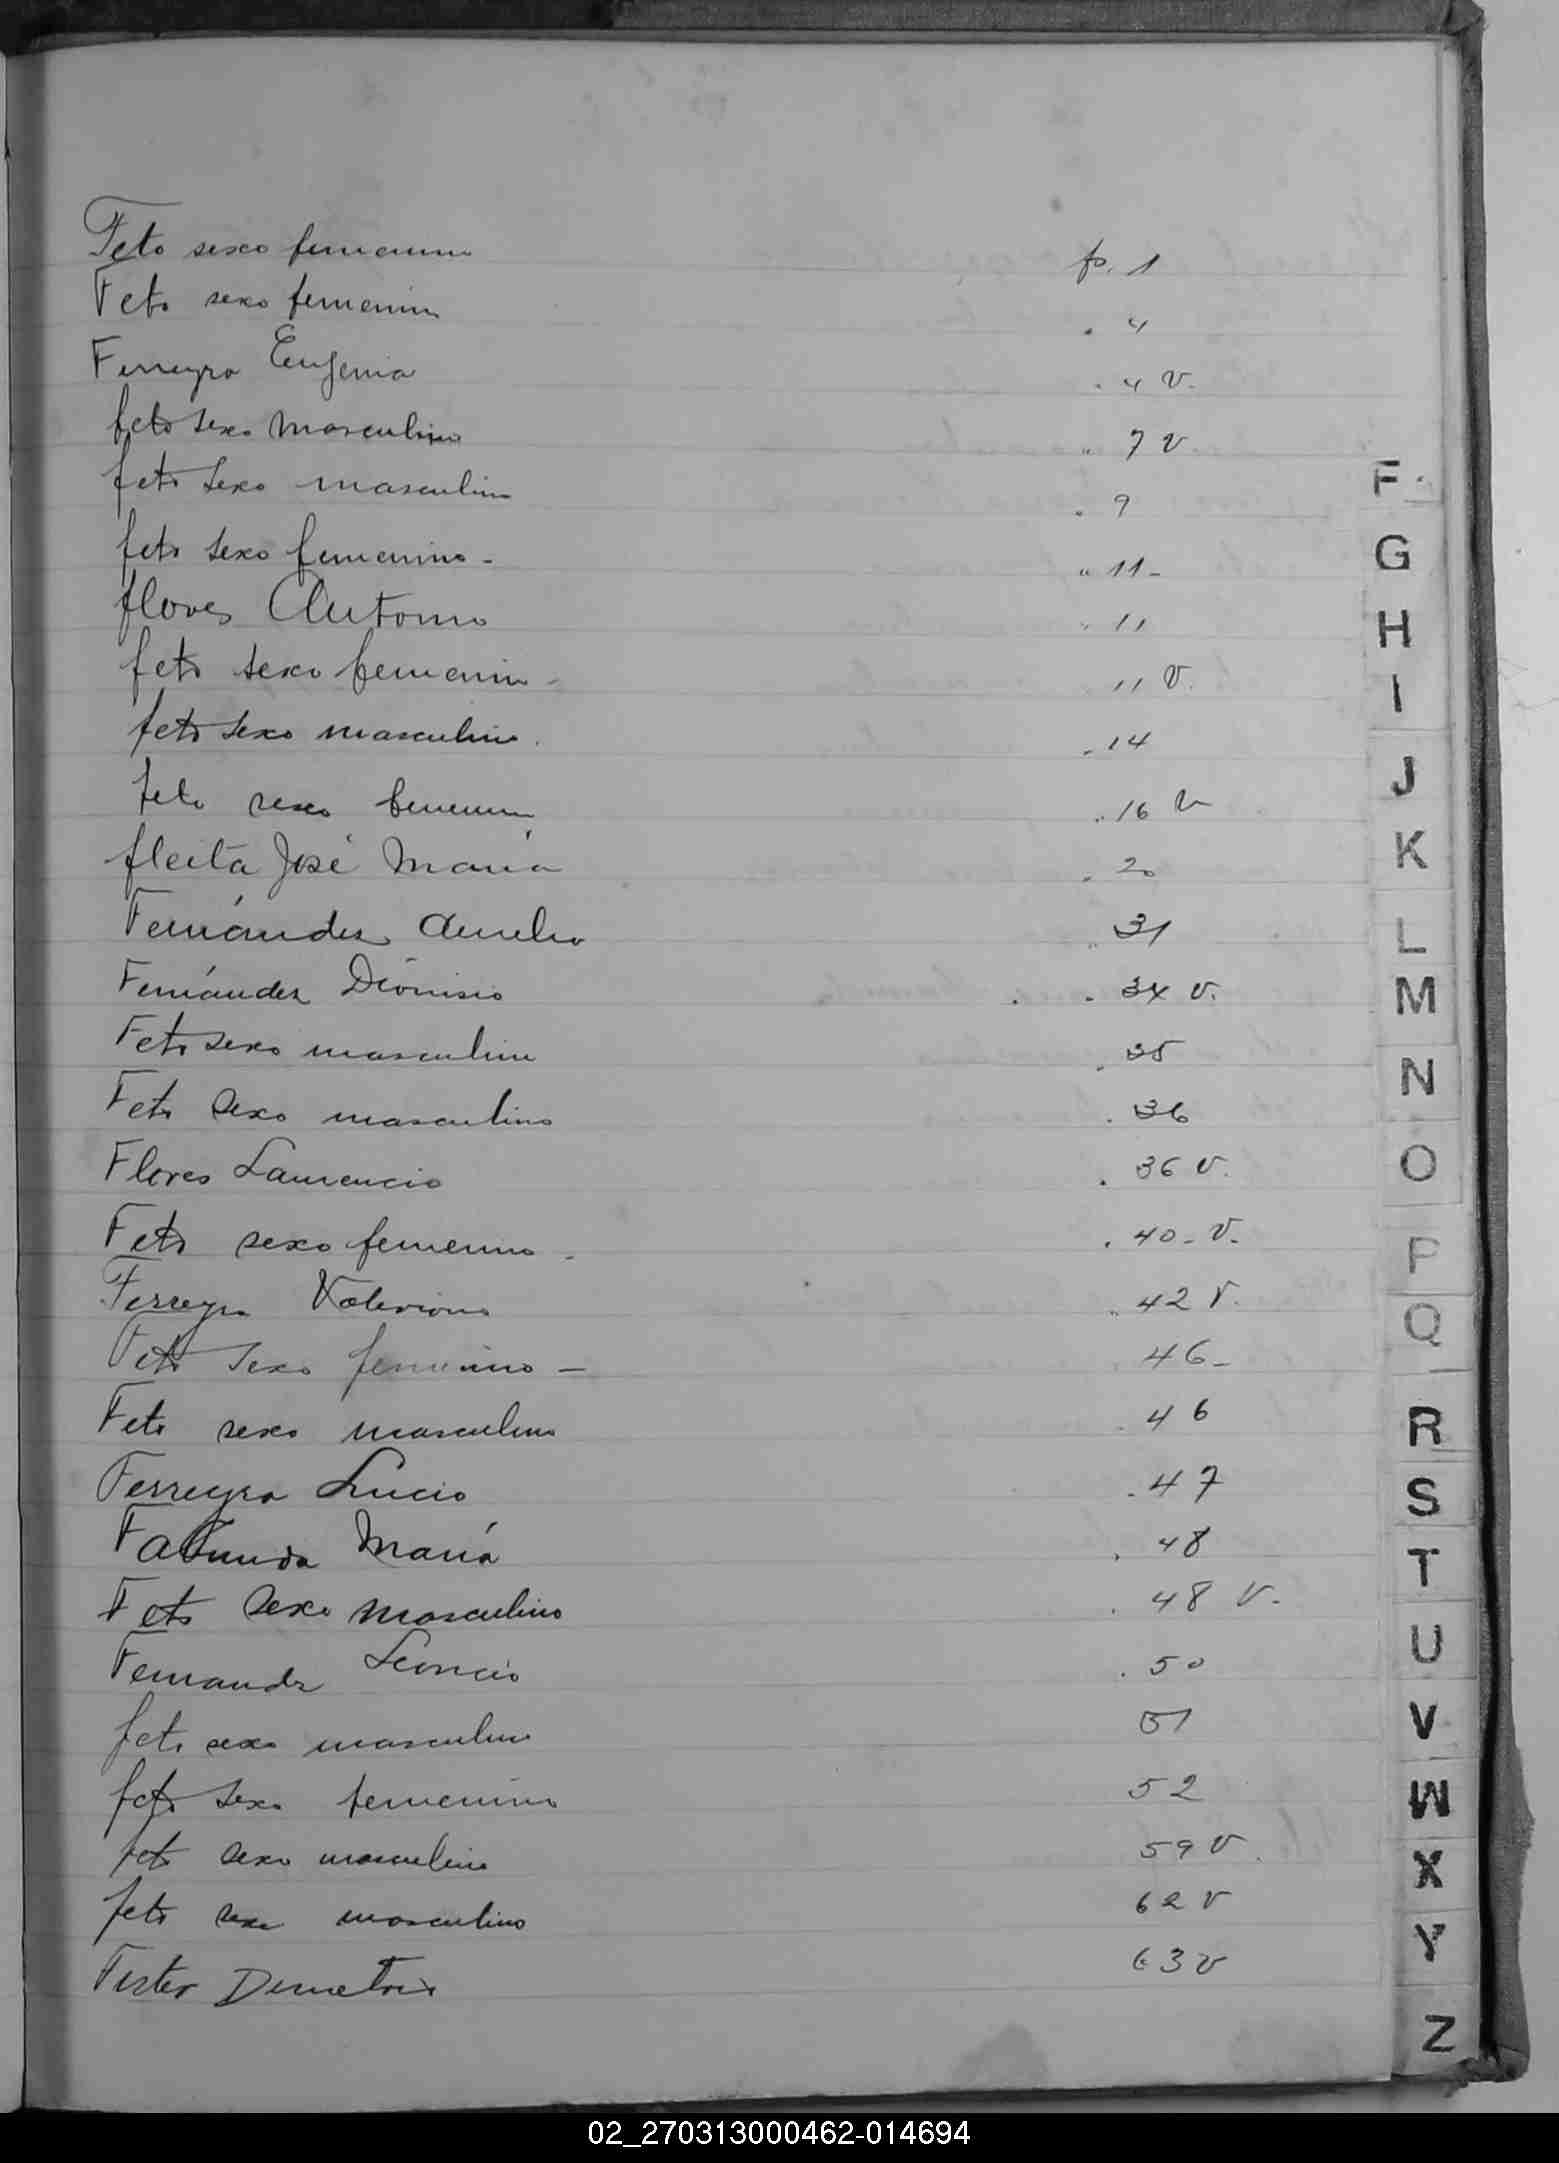 Feto sexo femenino fs. 1
Feto sexo femenino " 4
Ferreyra Eugenia " 4 v.
feto sexo masculino " 7 v
feto sexo masculino " 9
feto sexo femenino - " 11 -
flores Antonio " 11
feto sexo femenino - 11 v.
feto sexo masculino . " 14
feto sexo femenino " 16 v
fleita José María " 20
Fernández Aurelio " 31
Fernández Dionisio " 34 v.
Feto sexo masculino " 35
Feto sexo masculino " 36
Flores Laurencio " 36 v.
Feto sexo femenino - " 40 - v.
Ferreyra Valeriano " 42 v.
Feto sexo femenino - 46 -
Feto sexo masculino " 46
Ferreyra Lucio " 47
Facunda María " 48
Feto sexo masculino " 48 v.
Fernandz Leoncio " 50
feto sexo masculino 51
feto sexo femenino 52
feto sexo masculino 59 v.
feto sexo masculino 62 v
Demetrio 63 v
F
G
H
I
J
K
L
M
N
O
P
Q
R
S
T
U
V
W
X
Y
Z
02_270313000462-014694